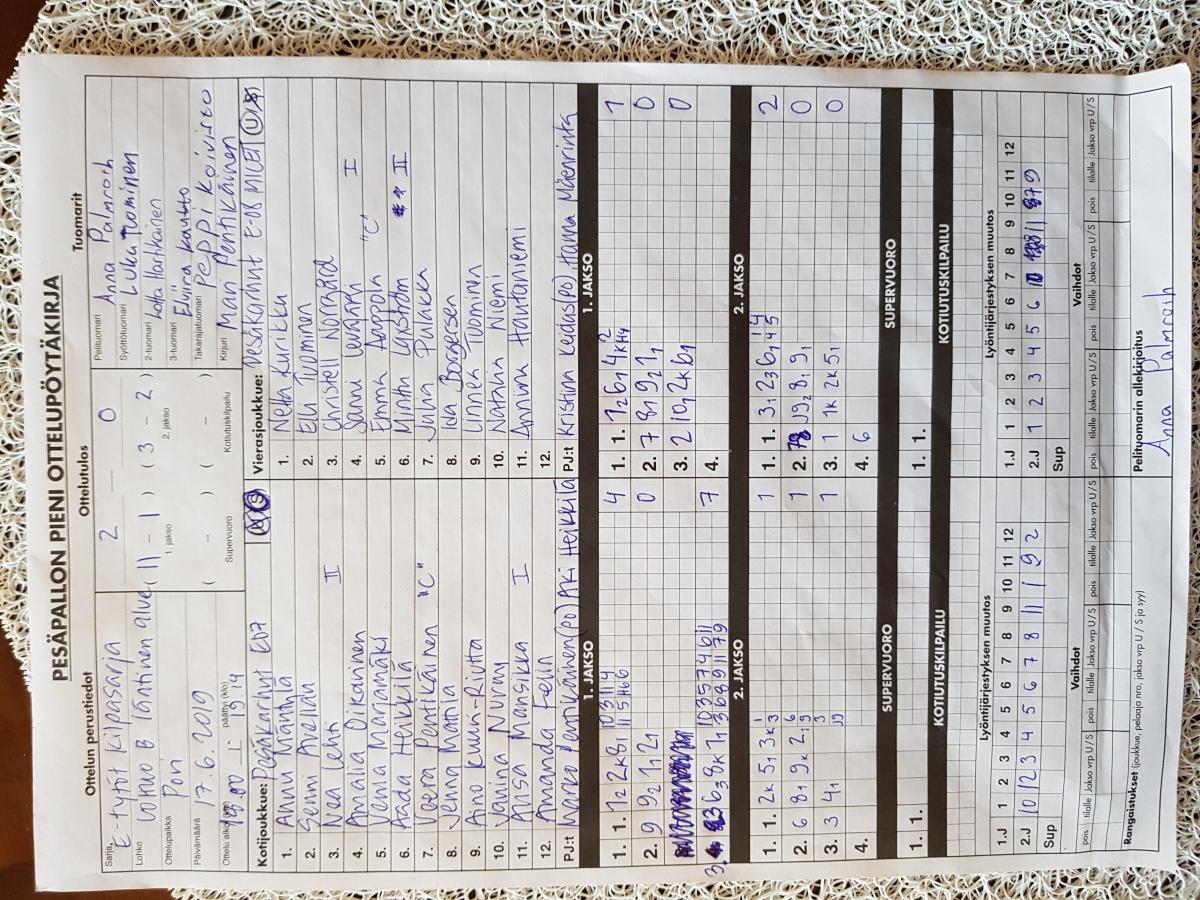 PESÄPALLON PIENI OTTELUPÖYTÄKIRJA
Ottelun perustiedot
Sarja, E-tytöt kilpasarja
Lohko Lohko B läntinen alue
Ottelupaikka Pori
Päivämäärä 17.6.2019
Ottelu alkoi 18.00 päättyi (klo) 19.14
Ottelutulos
2 — 0
( 11 – 1 ) ( 3 – 2 )
1. jakso 2. jakso
( – ) ( – )
Supervuoro Kotiutuskilpailu
Tuomarit
Pelituomari Anna Palmroth
Syöttötuomari Luka Tuominen
2-tuomari Lotta Hartikainen
3-tuomari Elviira Kautto
Takarajatuomari Peppi Koivisto
Kirjuri Mari Pentikäinen
Kotijoukkue: Pesäkarhut E07
1. Annu Mänttä
2. Senni Avellan
3. Nea Lehti II
4. Amalia Oikarinen
5. Venla Marjamäki
6. Aada Heikkilä
7. Veera Pentikäinen "C"
8. Jenna Mattila
9. Aino Kuuri-Riutta
10. Janina Nurmi
11. Ansa Mansikka I
12. Amanda Felin
PJ:t Marko Pentikäinen (PO) Aki Heikkilä
Vierasjoukkue: Pesäkarhut E-08 MICET
1. Nella Kurikka
2. Elli Tuominen
3. Christell Norrgård
4. Sanni I
5. Emma Aappola "C"
6. Minttu Laxström II
7. Julia Pulakka
8. Ida Borgersen
9. Linnea Tuominen
10. Natalia Niemi
11. Anniina Hautaniemi
12.
PJ:t Kristiina Keidas (PO), Hanna Mäenrinta
1. JAKSO
1. 1. 4
2. 9 9₂ 1₁ 2₁ 0
3. 7
1. JAKSO
1. 1. 1
2. 7 8₁ 9₂ 1₁ 0
3. 2 10₁ 2K 6₁ 0
4.
2. JAKSO
1. 1. 2K 5₁ 3K 1
2. 6 8₁ 9K 2₁ 1
3. 3 4₁ 1
4.
2. JAKSO
1. 1. 2
2. 8₁ 9₁ 0
3. 1 1K 2K 5₁ 0
4. 6
SUPERVUORO
1. 1.
SUPERVUORO
1. 1.
KOTIUTUSKILPAILU
KOTIUTUSKILPAILU
Lyöntijärjestyksen muutos
1.J 1 2 3 4 5 6 7 8 9 10 11 12
2.J 10 12 3 4 5 6 7 8 11 1 9 2
Sup
Lyöntijärjestyksen muutos
1.J 1 2 3 4 5 6 7 8 9 10 11 12
2.J 1 2 3 4 5 6 10 11 8 7 9
Sup
Vaihdot
pois tilalle Jakso vrp U/S pois tilalle Jakso vrp U/S pois tilalle Jakso vrp U/S
Vaihdot
pois tilalle Jakso vrp U/S pois tilalle Jakso vrp U/S pois tilalle Jakso vrp U/S
Rangaistukset (joukkue, pelaaja nro, jakso vrp U / S ja syy)
Pelituomarin allekirjoitus
Anna Palmroth